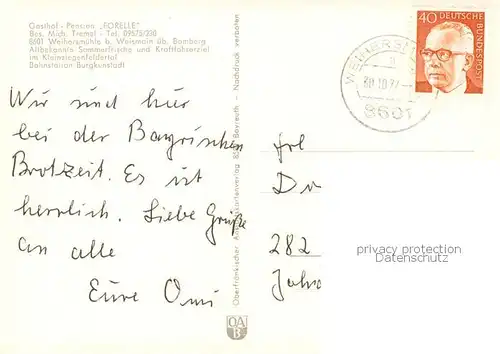 Gasthof - Pension „FORELLE"
Bes. Mich. Tremel - Tel. 09575/330
8601 Weihersmühle b. Weismain üb. Bamberg
Altbekannte Sommerfrische und Kraftfahrerziel
im Kleinziegenfeldertal
Bahnstation Burgkunstadt
Wir sind hier
bei der Bayrischen
Brotzeit. Es ist
herrlich. Liebe Grüße
an alle
Eure Omi
Oberfränkischer Ansichtskartenverlag 858 Bayreuth - Nachdruck verboten
OA
B
8601
40 DEUTSCHE
BUNDESPOST
frl
282
privacy protection
Datenschutz